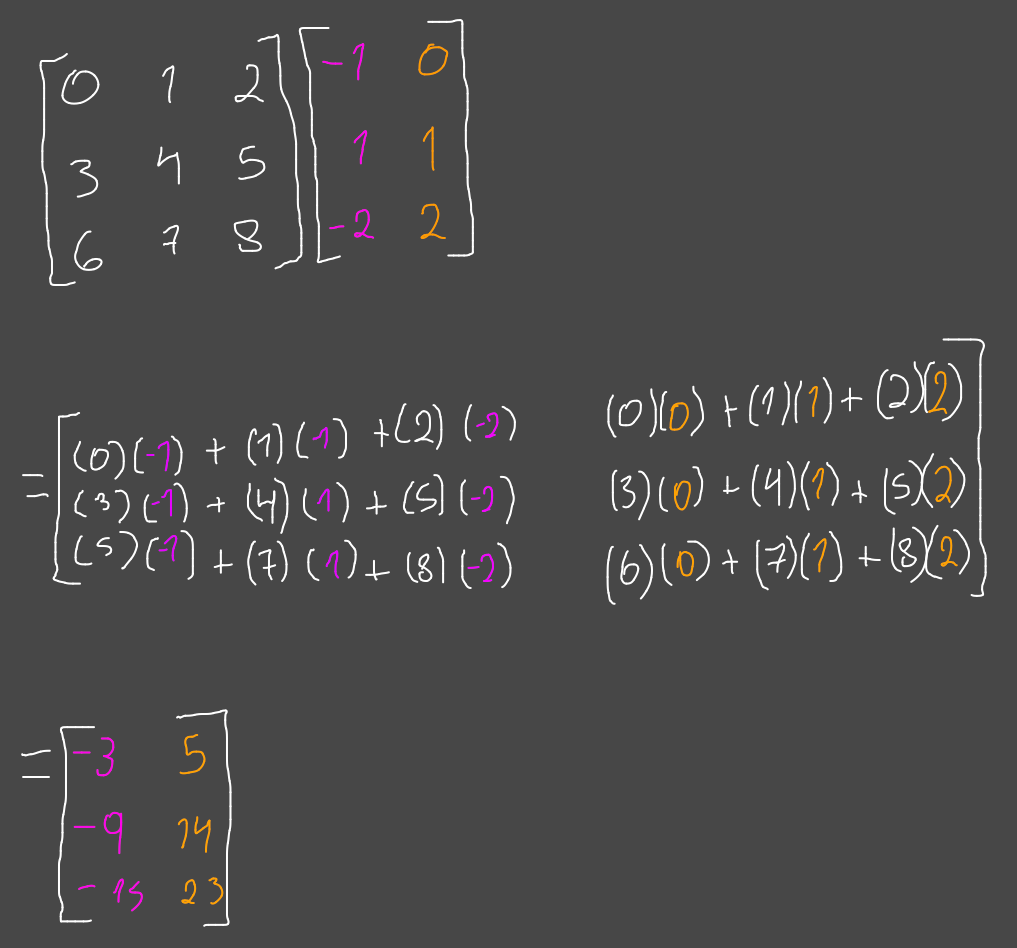 [0 1 2] [-1 0]
[3 4 5] [1 1]
[6 7 8] [-2 2]
= [(0)(-1) + (1)(1) + (2)(-2) (0)(0) + (1)(1) + (2)(2)]
[(3)(-1) + (4)(1) + (5)(-2) (3)(0) + (4)(1) + (5)(2)]
[(5)(-1) + (7)(1) + (8)(-2) (6)(0) + (7)(1) + (8)(2)]
= [-3 5]
[-9 14]
[-15 23]